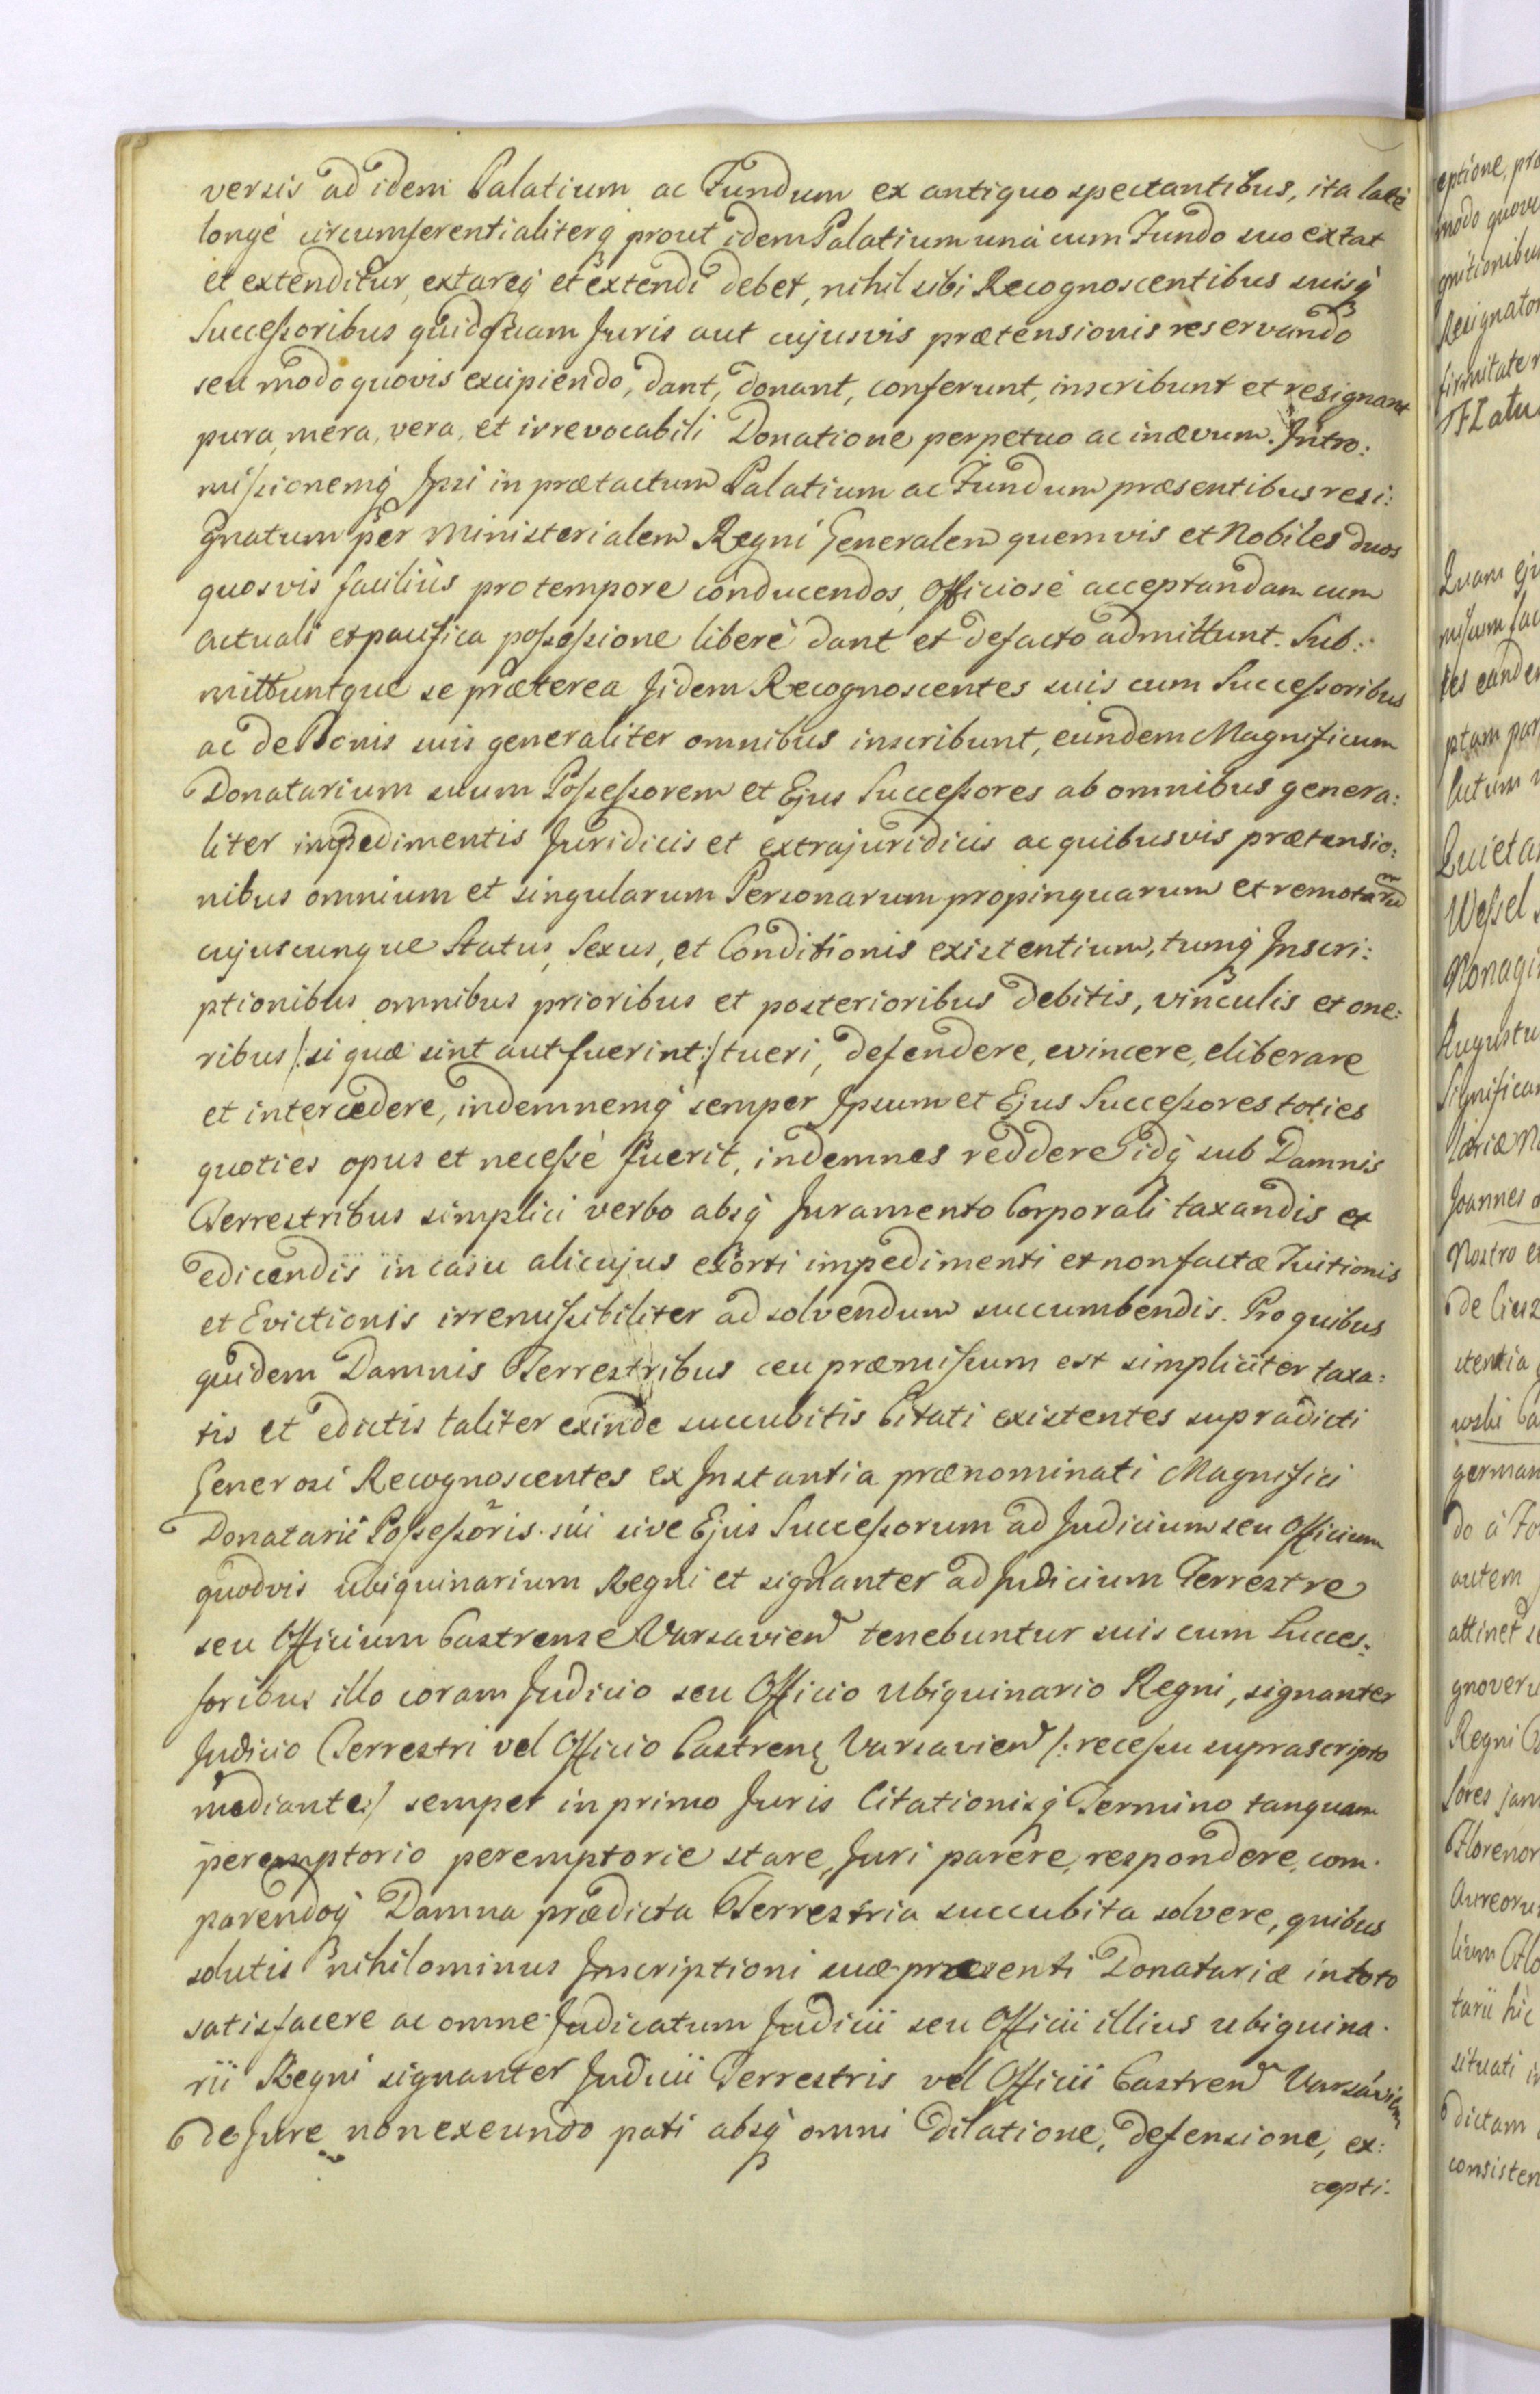 versis ad idem Palatium ac Fundum ex antiquo spectantibus, ita latè
longè circumferentialiterq3 prout idem Palatium unà cum Fundo suo extat
et extenditur, extareq3 et extendi debet, nihil sibi Recognoscentibus suisq3
Successoribus quidquam Juris aut cujusvis prætensionis reservando
seu modo quovis excipiendo, dant, donant, conferunt, inscribunt et resignant
pura, mera, vera, et irrevocabili Donatione perpetuo ac in ævum. Intro:
missionemq3 Ipsi in prætactum Palatium ac Fundum præsentibus resi:
gnatum per Ministerialem Regni Generalem quemvis et Nobiles duos
quosvis faciliùs pro tempore conducendos, Officiosè acceptandam cum
actuali et pacifica possessione liberè dant et defacto admittunt. Sub:
mittuntque se præterea Jidem Recognoscentes suis cum Successoribus
ac de Bonis suis generaliter omnibus inscribunt, eundem Magnificum
Donatarium suum Possessorem et Ejus Successores ab omnibus genera:
liter impedimentis Juridicis et extrajuridicis ac quibusvis prætensio:
nibus omnium et singularum Personarum propinquarum et remotarum
cujuscunque Status, Sexus, et Conditionis existentium, tumq3 Inscri:
ptionibus omnibus prioribus et posterioribus debitis, vinculis et one:
ribus /:si quæ sint aut fuerint:/ tueri, defendere, evincere, eliberare
et intercedere, indemnemq3 semper Ipsum et Ejus Successores toties
quoties opus et necessè fuerit, indemnes reddere idq3 sub Damnis
Terrestribus simplici verbo absq3 Juramento Corporali taxandis et
edicendis in casu alicujus exorti impedimenti et non factæ Tuitionis
et Evictionis irremissibiliter ad solvendum succumbendis. Pro quibus
quidem Damnis Terrestribus ceu præmissum est simpliciter taxa:
tis et edictis taliter exinde succubitis Citati existentes supradicti
Generosi Recognoscentes ex Instantia prænominati Magnifici
Donatarii Possessoris sui sive Ejus Successorum ad Judicium seu Officium
quodvis ubiquinarium Regni et signanter ad Judicium Terrestre
seu Officium Castrense Varsavien tenebuntur suis cum Succes:
soribus illo coram Judicio seu Officio Ubiquinario Regni, signanter
Judicio Terrestri vel Officio Castrenę Varsavien /:recessu suprascripto
mediante:/ semper in primo Juris Citationisq3 Termino tanquam
peremptorio peremptorie stare, Juri parère, respondere, com:
parendoq3 Damna prædicta Terrestria succubita solvere, quibus
solutis nihilominus Inscriptioni suæ præsenti Donatariæ in toto
satisfacere ac omne Judicatum Judicii seu Officii illius ubiquina:
rii Regni signanter Judicii Terrestris vel Officii Castren Varsavien
de Jure non exeundo pati absq3 omni dilatione, defensione, ex:
cepti:
eptione, pro
modo quovi
gnitionibus
Resignator
firmitater
Quam eju
missum fac
tes eunden
ptam par
Quieta
Wessel
Nonagi
Augustu
Significa
Joannes
Nostro e
de Ciesz
stentia
wski Ca
german
autem
attinet
gnoveru
Regni
sores jam
Florenor
Aureoru
lium Flo
tarii hic
situati i
dictam
consisten